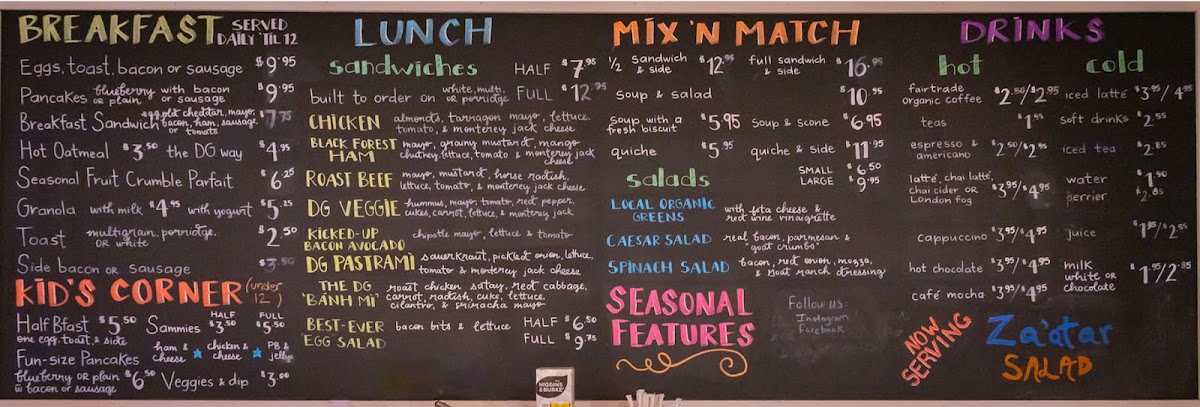 BREAKFAST SERVED DAILY 'TIL 12
Eggs, toast, bacon or sausage $9.95
Pancakes blueberry or plain with bacon or sausage $9.95
Breakfast Sandwich egg, old cheddar, mayo, bacon, ham, sausage, or tomato $7.75
Hot Oatmeal $3.50 the DG way $4.95
Seasonal Fruit Crumble Parfait $6.25
Granola with milk $4.95 with yogurt $5.25
Toast multigrain, porridge, or white $2.50
Side bacon or sausage $3.50
KID'S CORNER (under 12)
Half Bfast $5.50
one egg, toast, & side
Sammies HALF $3.50 FULL $5.50
ham & cheese ★ chicken & cheese ★ PB & jelly
Fun-size Pancakes
blueberry OR plain
w bacon or sausage $6.50
Veggies & dip $3.00
LUNCH
sandwiches HALF $7.95
built to order on white, multi, or porridge FULL $12.95
CHICKEN almonds, tarragon mayo, lettuce, tomato, & monterey jack cheese
BLACK FOREST HAM mayo, grainy mustard, mango chutney, lettuce, tomato & monterey jack cheese
ROAST BEEF mayo, mustard, horse radish, lettuce, tomato, & monterey jack cheese
DG VEGGIE hummus, mayo, tomato, red pepper, cukes, carrot, lettuce, & monterey jack
KICKED-UP BACON AVOCADO chipotle mayo, lettuce & tomato
DG PASTRAMI sauerkraut, pickled onion, lettuce, tomato & monterey jack cheese
THE DG 'BÁNH MÌ' roast chicken satay, red cabbage, carrot, radish, cuke, lettuce, cilantro, & sriracha mayo
BEST-EVER EGG SALAD bacon bits & lettuce HALF $6.50
FULL $9.75
MIX 'N MATCH
½ sandwich & side $12.95 full sandwich & side $16.95
soup & salad $10.95
soup with a fresh biscuit $5.95 soup & scone $6.95
quiche $5.95 quiche & side $11.95
salads SMALL $6.50
LARGE $9.95
LOCAL ORGANIC GREENS with feta cheese & red wine vinaigrette
CAESAR SALAD real bacon, parmesan & "goat crumbs"
SPINACH SALAD bacon, red onion, mozza, & goat ranch dressing
SEASONAL
FEATURES
Follow us:
Instagram
Facebook
DRINKS
hot
fair trade organic coffee $2.50/$2.95
teas $1.95
espresso & americano $2.50/$2.95
latté, chai latté, chai cider OR London fog $3.95/$4.95
cappuccino $3.95/$4.95
hot chocolate $3.95/$4.95
café mocha $3.95/$4.95
cold
iced latté $3.95/4.95
soft drinks $2.55
iced tea $2.85
water $1.90
perrier $2.85
juice $1.85/$2.85
milk white or chocolate $1.95/2.85
NOW SERVING
Za'atar
SALAD
HIGGINS & BURKE